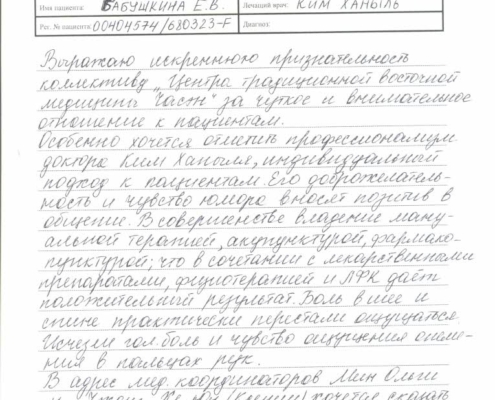 Имя пациента: БАБУШКИНА Е.В. Лечащий врач: КИМ ХАНЫЛЬ
Рег. № пациента: 00404574/680323-F Диагноз:
Выражаю искреннюю признательность
коллективу „Центра традиционной восточной
медицины Часэн" за чуткое и внимательное
отношение к пациентам.
Особенно хочется отметить профессионализм
доктора Ким Ханыля, индивидуальный
подход к пациентам. Его доброжелатель-
ность и чувство юмора вносят позитив в
общение. В совершенстве владение ману-
альной терапией, акупунктурой, фармако-
пунктурой; что в сочетании с лекарственными
препаратами, физиотерапией и ЛФК даёт
положительный результат. Боль в шее и
спине практически перестали ощущаться.
Исчезли гол. боль и чувство ощущения онеме-
ния в пальцах рук.
В адрес мед. координаторов Мин Ольги
и (Ксении) хочется сказать